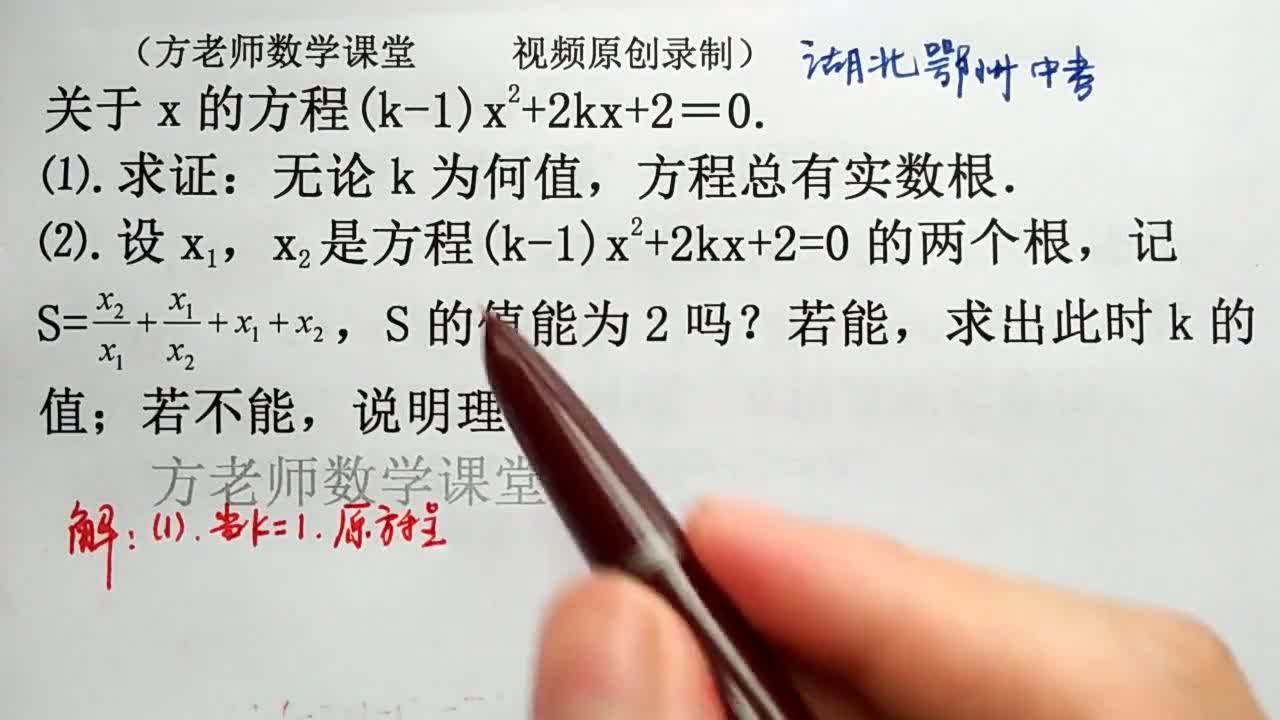 （方老师数学课堂 视频原创录制） 湖北鄂州中考
关于 x 的方程(k-1)x²+2kx+2＝0.
⑴. 求证：无论 k 为何值，方程总有实数根．
⑵. 设 x₁，x₂是方程(k-1)x²+2kx+2=0 的两个根，记
S=x₂/x₁+x₁/x₂+x₁+x₂，S 的值能为 2 吗？若能，求出此时 k 的
值；若不能，说明理
方老师数学课堂
解：(1).当k=1.原方程